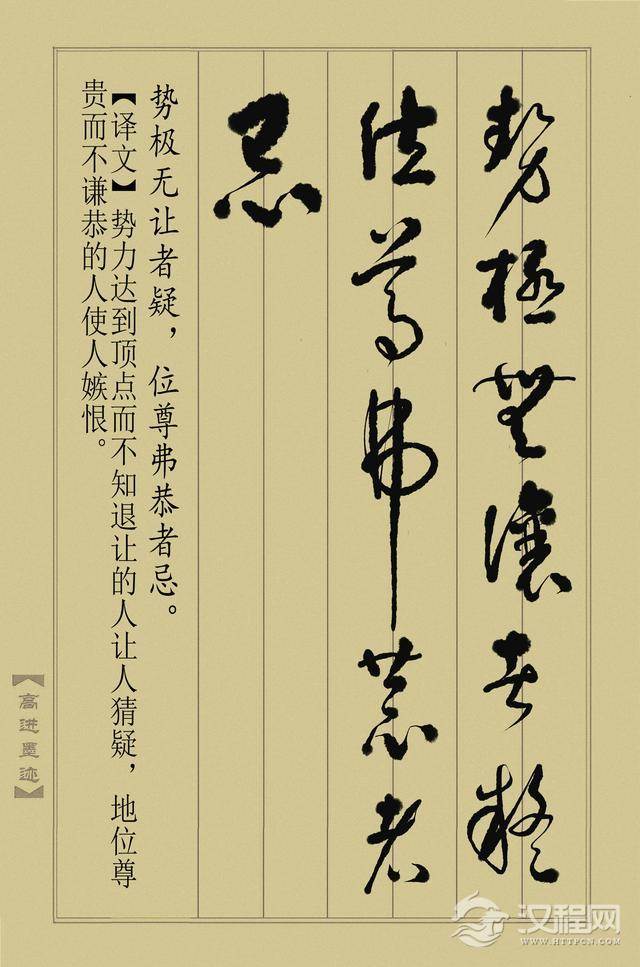 势极無讓者疑
位尊弗恭者
忌
势极无让者疑，位尊弗恭者忌。
【译文】势力达到顶点而不知退让的人让人猜疑，地位尊
贵而不谦恭的人使人嫉恨。
【高进墨迹】
汉程网
WWW.HTTPCN.COM